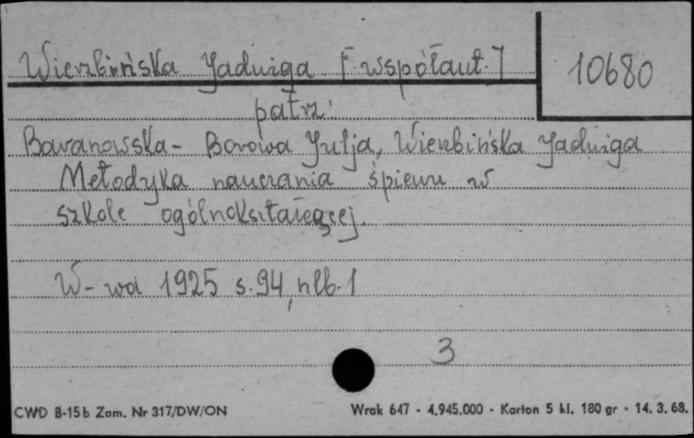 Wierzbińska Jadwiga [współaut.]
10680
patrz:
Baranowska - Borowa Julja, Wierzbińska Jadwiga
Metodyka nauczania śpiewu w
szkole ogólnokształcącej.
W-wa 1925 s. 94, nlb. 1
3
CWD B-15b Zam. Nr 317/DW/ON
Wrak 647 - 4.945.000 - Karton 5 kl. 180 gr - 14. 3. 68.